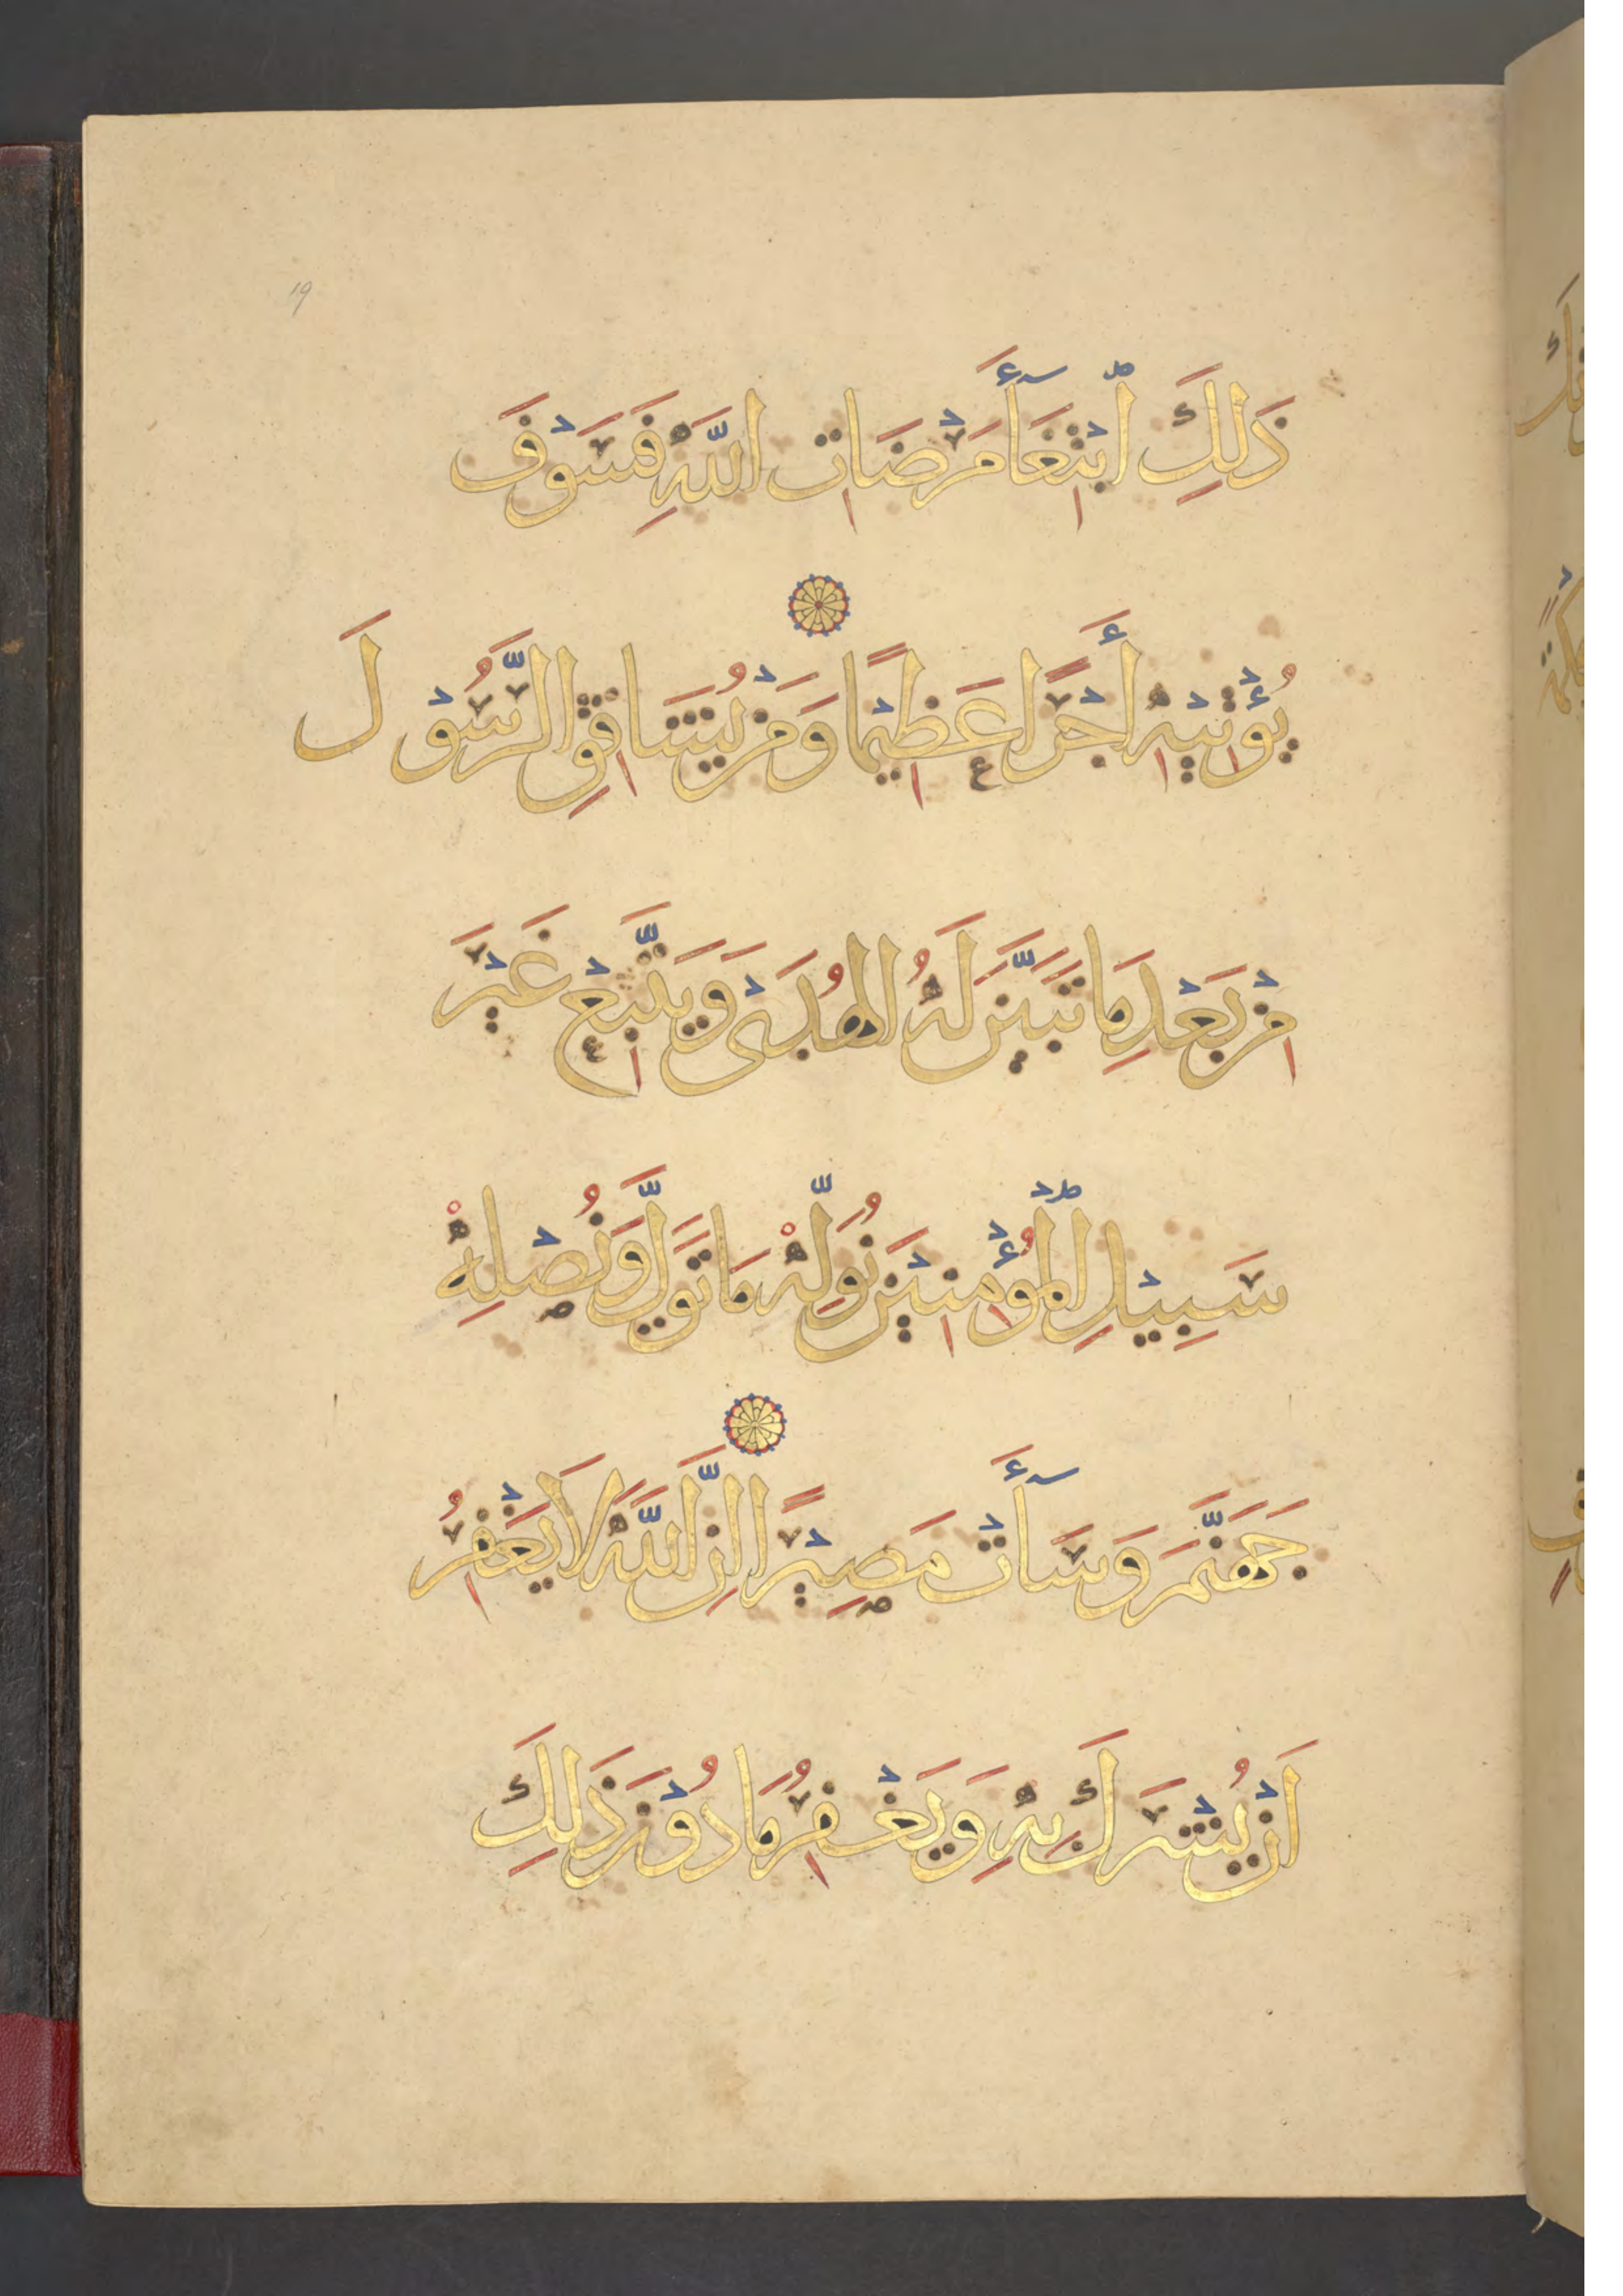 19
ذَلِكَ ٱبْتِغَآءَ مَرْضَاتِ اللَّهِ فَسَوْفَ
يُؤْتِيْهِ أَجْرًا عَظِيْمًا وَمَنْ يُشَاقِقِ الرَّسُوْلَ
مِنْ بَعْدِ مَا تَبَيَّنَ لَهُ الْهُدَىْ وَيَتَّبِعْ غَيْرَ
سَبِيْلِ ٱلْمُؤْمِنِيْنَ نُوَلِّهْ مَا تَوَلَّى وَنُصْلِهْ
جَهَنَّمَ وَسَآءَتْ مَصِيْرًا اِنَّ اللَّهَ لَا يَغْفِرُ
اَنْ يُشْرَكَ بِهِ وَيَغْفِرُ مَا دُوْنَ ذَلِكَ